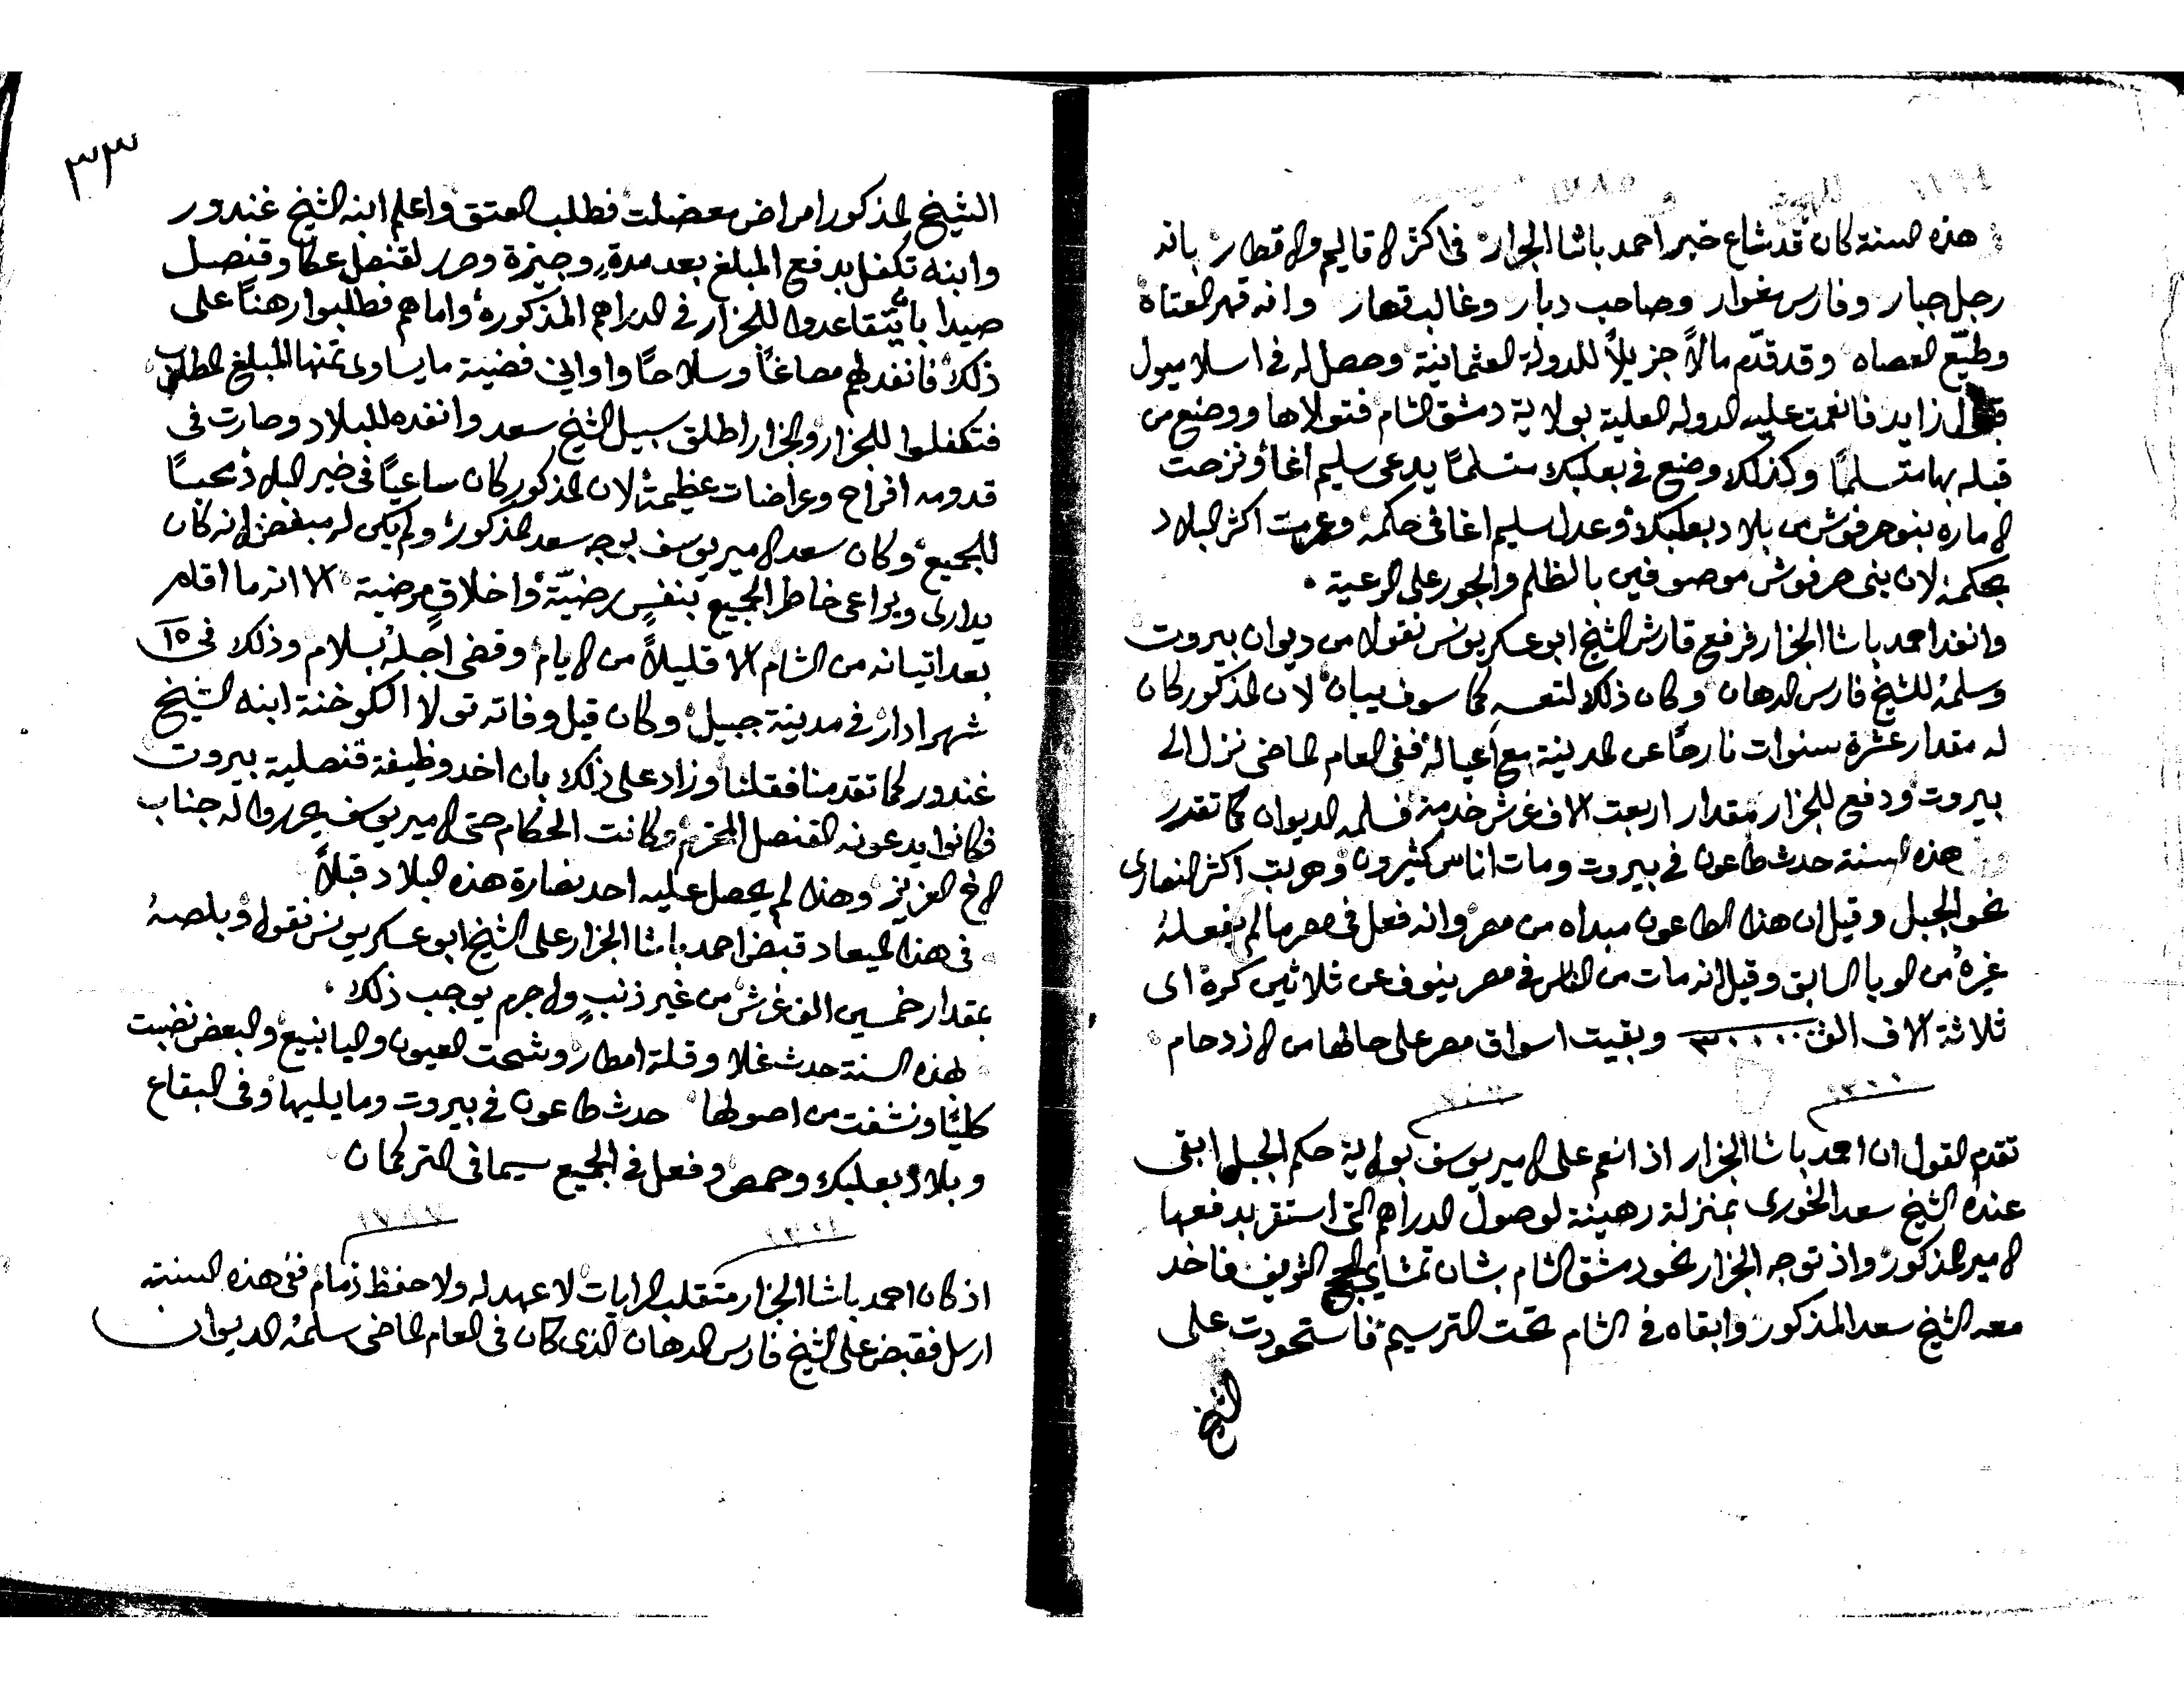 ١١٩٩ ١٧٨٥
هذه السنة كان قد شاع خبر احمد باشا الجزار في اكثر الاقاليم والاقطار بانه
رجل جبار وفارس مغوار وصاحب دبار وغالب قهار وانه قهر العتاه
وطيّع العصاه وقد قدّم مالاً جزيلاً للدولة العثمانية وحصل له في اسلامبول
قبول زايد فانعمت عليه الدوله العلية بولاية دمشق الشام فتولاها ووضع من
قبله بها متسلمًا وكذلك وضع في بعلبك متسلمًا يدعى سليم اغا ونزحت
الاماره بنو حرفوش من بلاد بعلبك وعدل سليم اغا في حكمه وعمرت اكثر البلاد
بحكمه لان بنى حرفوش موصوفين بالظلم والجور على الرعية
وانفد احمد باشا الجزار فرفع قارش الشيخ ابو عسكر يونس نقولا من ديوان بيروت
وسلمه للشيخ فارس الدهان وكان ذلك لتعسه كما سوف يبان لان المذكور كان
له مقدار عشرة سنوات نازحًا عن المدينة مع اعياله ففى العام الماضى نزل الى
بيروت ودفع للجزار مقدار اربعت الاف غرش خدمة فسلمه الديوان كما تقدر
هذه السنة حدث طاعون في بيروت ومات اناس كثيرون وهربت اكثر النصارى
نحو الجبل وقيل ان هذا الطاعون مبداه من مصر وانه فعل في مصر ما لم يفعله
غيره من الوبا السابق وقيل انه مات من الناس في مصر ينوف عن ثلاثين كرة اى
ثلاثة الاف الف ٣٠٠٠٠٠٠ وبقيت اسواق مصر على حالها من الازدحام
١٢٠٠ ١٧٨٦
تقدم القول ان احمد باشا الجزار اذ انعم على الامير يوسف بولاية حكم الجبل ابقى
عنده الشيخ سعد الخورى بمنزلة رهينة لوصول الدراهم التى استقر بدفعها
الامير المذكور واذ توجه الجزار نحو دمشق الشام بشان تمشاي الحج الشريف فاخد
معه الشيخ سعد المذكور وابقاه في الشام تحت الترسيم فاستحودت على
الشيخ
٣٣
الشيخ المذكور امراض معضلت فطلب العتق واعلم ابنه الشيخ غندور
وابنه تكفل بدفع المبلغ بعد مدةٍ وجيزة وحرر لقنصل عكا وقنصل
صيدا بان يتقاعدوا للجزار في الدراهم المذكورة واما هم فطلبوا رهنًا على
ذلك فانفد لهم مصاغًا وسلاحًا واواني فضية ما يساوى تمنها المبلغ المطلوب
فتكفلوا للجزار والجزار اطلق سبيل الشيخ سعد وانفده للبلاد وصارت في
قدومه افراح وعراضات عظيمة لان المذكور كان ساعيًا في خير البلاد محبًا
للجميع وكان سعد الامير يوسف بوجه سعد المذكور ولم يكن له مبغض لانه كان
يدارى ويراعى خاطر الجميع بنفسٍ رضيّة واخلاقٍ مرضية الا انه ما اقام
بعد اتيانه من الشام الا قليلاً من الايام وقضى اجله بسلام وذلك في ١٥
شهر ادار في مدينة جبيل وكان قبل وفاته تولا الكوخنة ابنه الشيخ
غندور كما تقدمنا فقلنا وزاد على ذلك بان اخد وظيفة قنصلية بيروت
فكانوا يدعونه القنصل المحترم وكانت الحكام حتى الامير يوسف يحرروا له جناب
الاخ العزيز وهذا لم يحصل عليه احد نصارة هذه البلاد قبلاً
في هذا الميعاد قبض احمد باشا الجزار على الشيخ ابو عسكر يونس نقولا وبلصه
بمقدار خمسين الف غرش من غير ذنبٍ ولا جرم يوجب ذلك
لهذه السنة حدث غلا وقلة امطار وشحت العيون واليانبيع والبعض نضبت
كليًا ونشفت من اصولها حدث طاعون في بيروت وما يليها وفى البقاع
وبلاد بعلبك وحمص وفعل في الجميع سيما في التركمان
١٢٠١ ١٧٨٧
اذ كان احمد باشا الجزار متقلب الرايات لا عهد له ولا حفظ زمام ففى هذه السنة
ارسل فقبض على الشيخ فارس الدهان الذى كان في العام الماضى سلمه الديوان